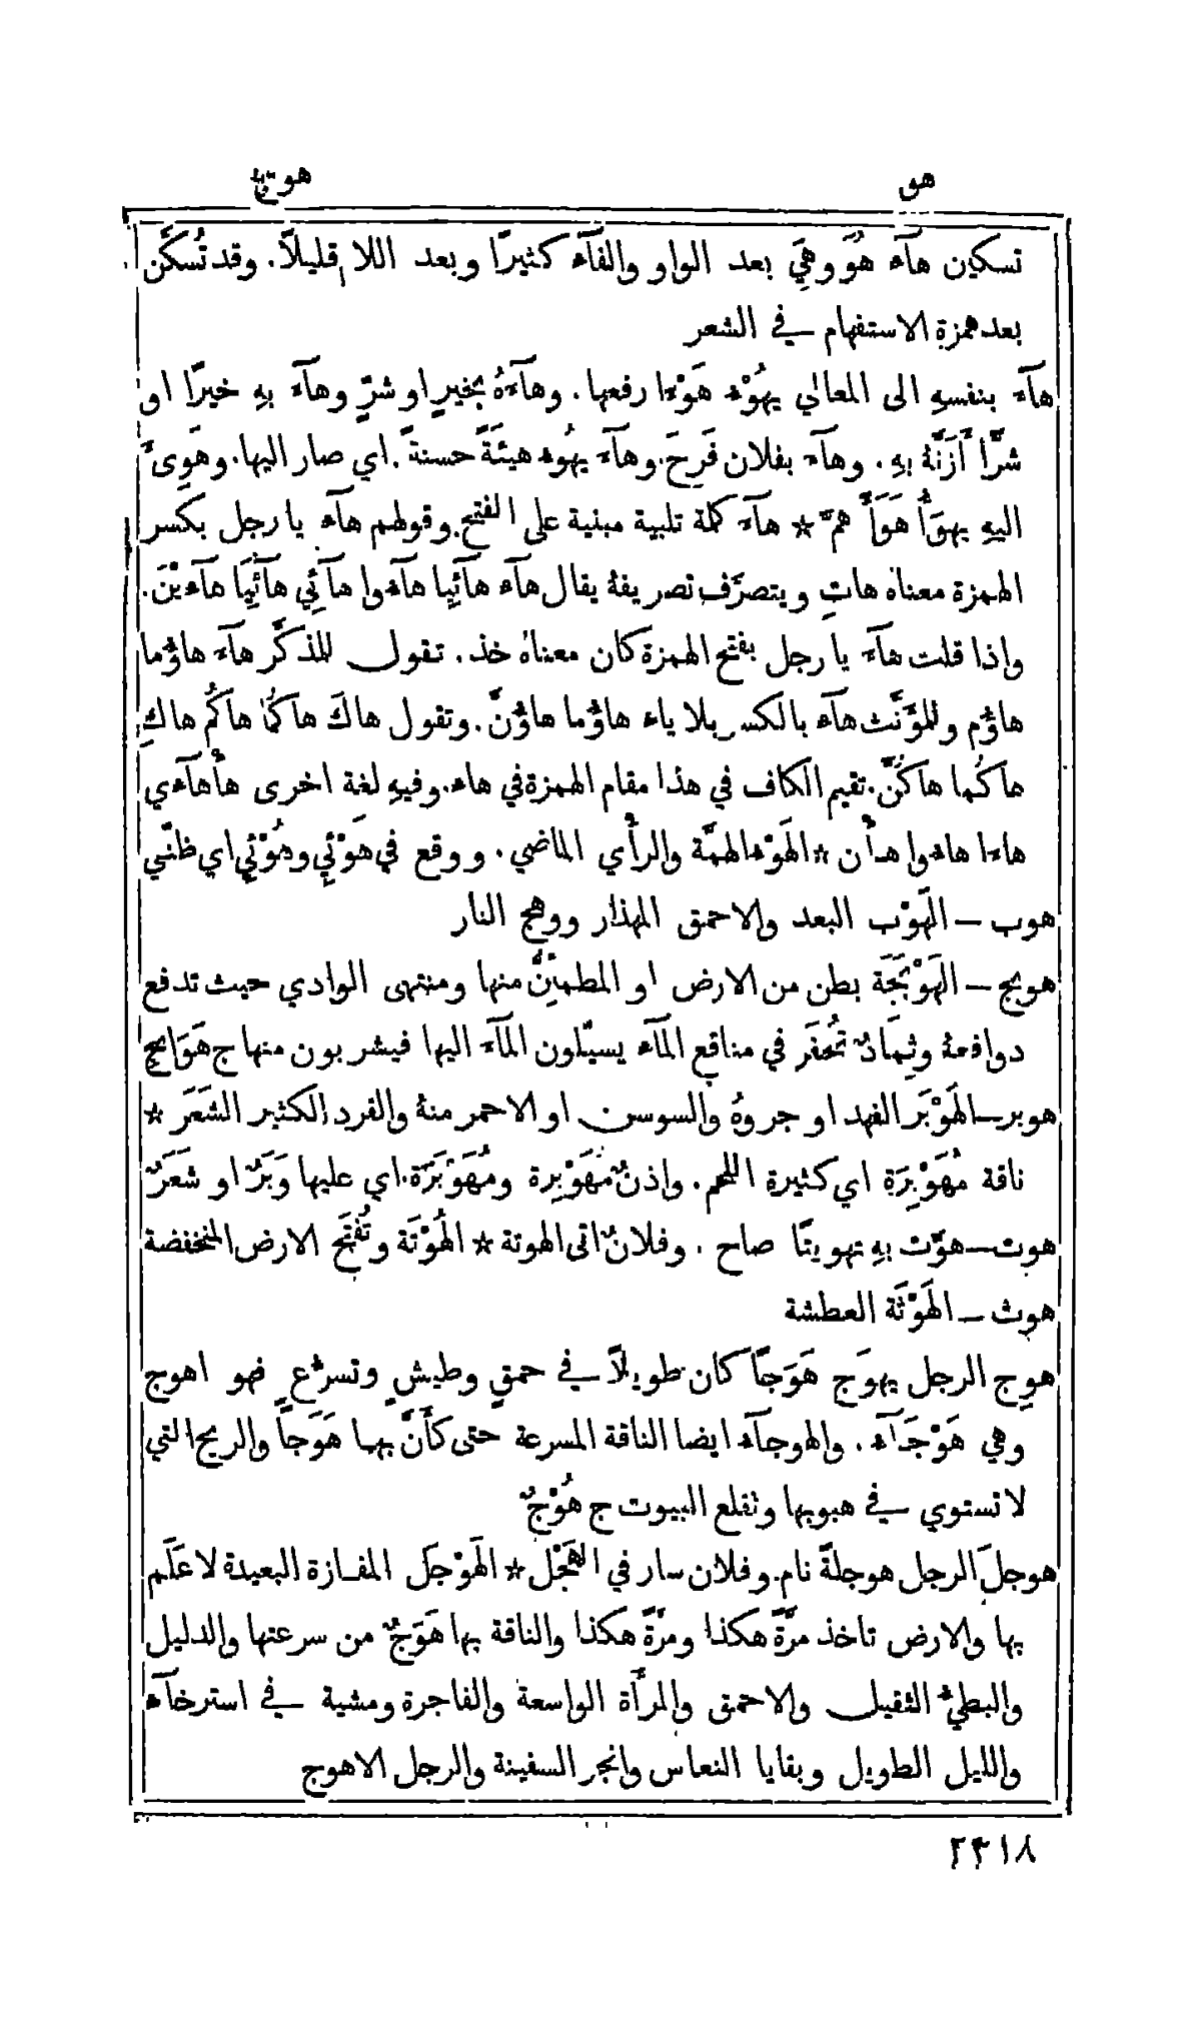 هو
هوج
تسكين هآء هُوَ وهِيَ بعد الواو والفآء كثيرًا وبعد اللام قليلاً. وقد تُسكَّن
بعد همزة الاستفهام في الشعر
هآء بنفسهِ الى المعالي يهُوْء هَوْءا رفعها. وهآءَهُ بخيرٍ او شرٍّ وهآء بهِ خيرًا او
شرًّا أَزَنَّهُ بهِ. وهآء بفلان فَرِحَ. وهآء يهُوء هيئَةً حسنةً. اي صار اليها. وهَوِىءَ
اليهِ يهوَأُ هَوَأً همَّ ☆ هآء كلمة تلبية مبنية على الفتح. وقولهم هآء يا رجل بكسر
الهمزة معناهُ هاتِ ويتصرَّف تصريفهُ يقال هآء هآئِيا هآءُوا هآئِي هآئِيَا هآءِيْنَ.
واذا قلت هآء يا رجل بفتح الهمزة كان معناهُ خذ. تقول للمذكَّر هآء هاؤُما
هاؤُم وللمؤنَّث هآء بالكسر بلا ياء هاؤُما هاؤُنَّ. وتقول هاكَ هاكُما هاكُم هاكِ
هاكُما هاكُنَّ. تقيم الكاف في هذا مقام الهمزة في هاء. وفيهِ لغة اخرى هأْ هآءي
هاءا هاءوا هأن ☆ الهَوْء الهمَّة والرأْي الماضي. ووقع في هَوْئِي وهُوْئِي اي ظنّي
هوب – الهَوْب البعد والاحمق المهذار ووهج النار
هوبج – الهَوْبَجَة بطن من الارض او المطمئِنُّ منها ومنتهى الوادي حيث تدفع
دوافعهُ وثِمادٌ تُحفَر في مناقع المآء يسيّلون المآء اليها فيشربون منها ج هَوَابِج
هوبر – الهَوْبَر الفهد او جروهُ والسوسن او الاحمر منهُ والقرد الكثير الشَعَر ☆
ناقة مُهَوْبِرَة اي كثيرة اللحم. واذنٌ مُهَوْبِرة ومُهَوْبَرَة. اي عليها وَبَرٌ او شَعَرٌ
هوت – هوَّت بهِ تهويتًا صاح. وفلانٌ اتى الهوتة ☆ الهُوْتَة وتُفتَح الارض المنخفضة
هوث – الهَوْثَة العطشة
هوِج الرجل يهوَج هَوَجًا كان طويلاً في حمقٍ وطيشٍ وتسرُّعٍ فهو اهوج
وهي هَوْجَآء. والهوجآء ايضا الناقة المسرعة حتى كأَنَّ بها هَوَجاً والريح التي
لا تستوي في هبوبها وتقلع البيوت ج هُوْجٌ
هوجلَ الرجل هوجلةً نام. وفلان سار في الهَجْل ☆ الهَوْجَل المفازة البعيدة لا عَلَم
بها والارض تاخذ مرَّةً هكذا ومرَّةً هكذا والناقة بها هَوَجٌ من سرعتها والدليل
والبطيءُ الثقيل والاحمق والمرأَة الواسعة والفاجرة ومشية في استرخآء
والليل الطويل وبقايا النعاس وانجر السفينة والرجل الاهوج
٢٢١٨